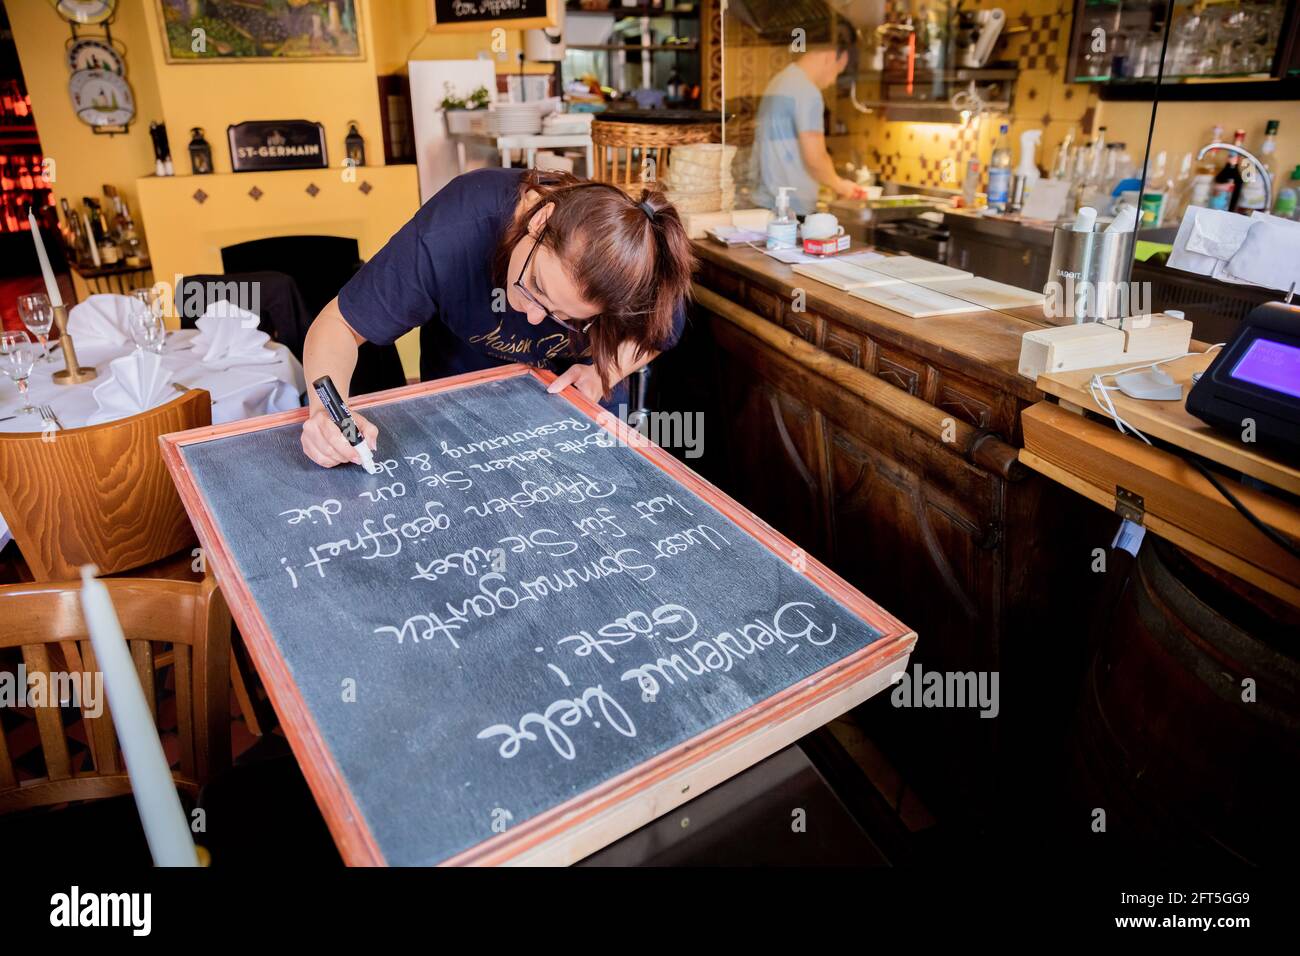 Bienvenue liebe
Gäste!
Unser Sommergarten
hat für Sie über
Pfingsten geöffnet!
Bitte denken Sie an die
Reservierung & de
Bon Appétit!
ST-GERMAIN
Maison
BADOIT
alamy
Image ID: 2FT5GG9
www.alamy.com